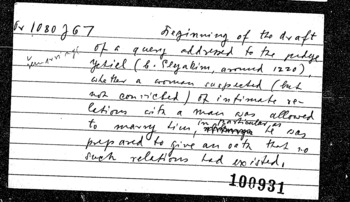 Or 1080 J 67
Beginning of the draft
of a query addressed to the judge
Yehiel (b. Elyakim, around 1220),
whether a woman suspected (but
not convicted) of intimate re-
lations with a man was allowed
to marry him, in particular, as he was
prepared to give an oath that no
such relations had existed.
100931